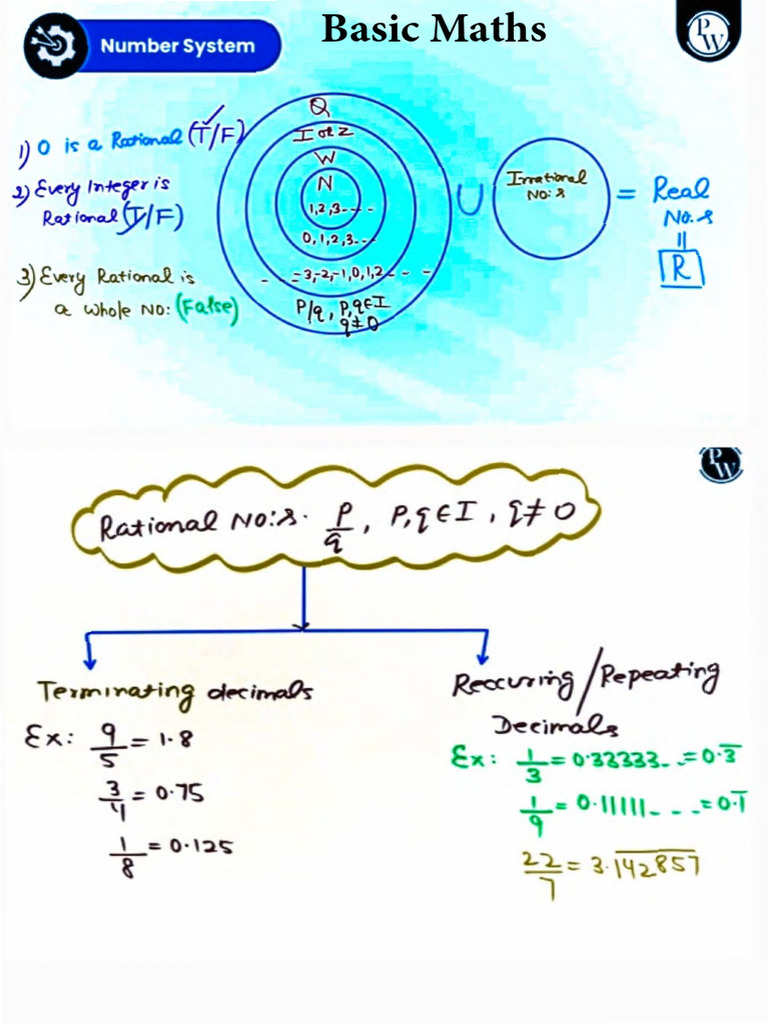 Basic Maths
Number System
PW
1) 0 is a Rational (T/F)
2) Every Integer is
Rational (T/F)
3) Every Rational is
a whole NO: (False)
Q
I or Z
W
N
1,2,3----
0,1,2,3---
- - -3,-2,-1,0,1,2 - - -
P/q, P,q∈I
q≠0
∪
Irrational
NO:s
= Real
NO:s
=
R
PW
Rational NO:s. P/q, P,q∈I, q≠0
Terminating decimals
Ex: 9/5 = 1.8
3/4 = 0.75
1/8 = 0.125
Reccuring/Repeating
Decimals
Ex: 1/3 = 0.33333.. = 0.3̅
1/9 = 0.11111--- = 0.1̅
22/7 = 3.1̅4̅2̅8̅5̅7̅